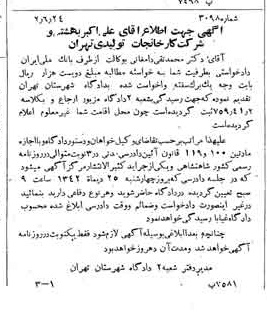 شماره ۳۰۹۸
آگهی جهت اطلاع آقای علی اکبر بهشتی و
شرکت کارخانجات تولیدی تهران
آقای دکتر محمدتقی دامغانی بوکالت از طرف بانک ملی ایران
دادخواستی بطرفیت شما به خواسته مطالبه مبلغ دویست هزار ریال
بابت وجه یک برگ سفته واخواست شده بدادگاه شهرستان تهران
تقدیم نموده که جهت رسیدگی بشعبه ۲ دادگاه مزبور ارجاع و بکلاسه
ثبت گردیده است چون محل اقامت شما غیر معلوم اعلام
گردیده است
علیهذا مراتب بر حسب تقاضای وکیل خواهان و دستور دادگاه و با اجازه
مادتین ۱۰۰ و ۱۱۹ قانون آئین دادرسی مدنی در ۳ نوبت متوالی در روزنامه
رسمی کشور شاهنشاهی و یکی از جراید کثیرالانتشار مرکز آگهی میشود
که در جلسه دادرسی که بروز چهارشنبه ۲۵ دیماه ۱۳۴۲ ساعت ۹
صبح تعیین گردیده در دادگاه حاضر شوید و هر نوع دفاعی دارید بنمائید
در غیر اینصورت دادخواست و ضمائم و وقت دادرسی ابلاغ شده محسوب
دادگاه غیابا رسیدگی خواهد نمود
چنانچه بعدا ابلاغی بوسیله آگهی لازم شود فقط یکنوبت در روزنامه
آگهی خواهد شد و مدت آن ده روز خواهد بود
مدیر دفتر شعبه ۲ دادگاه شهرستان تهران
پ ۷۵۸۱ ۳-۱